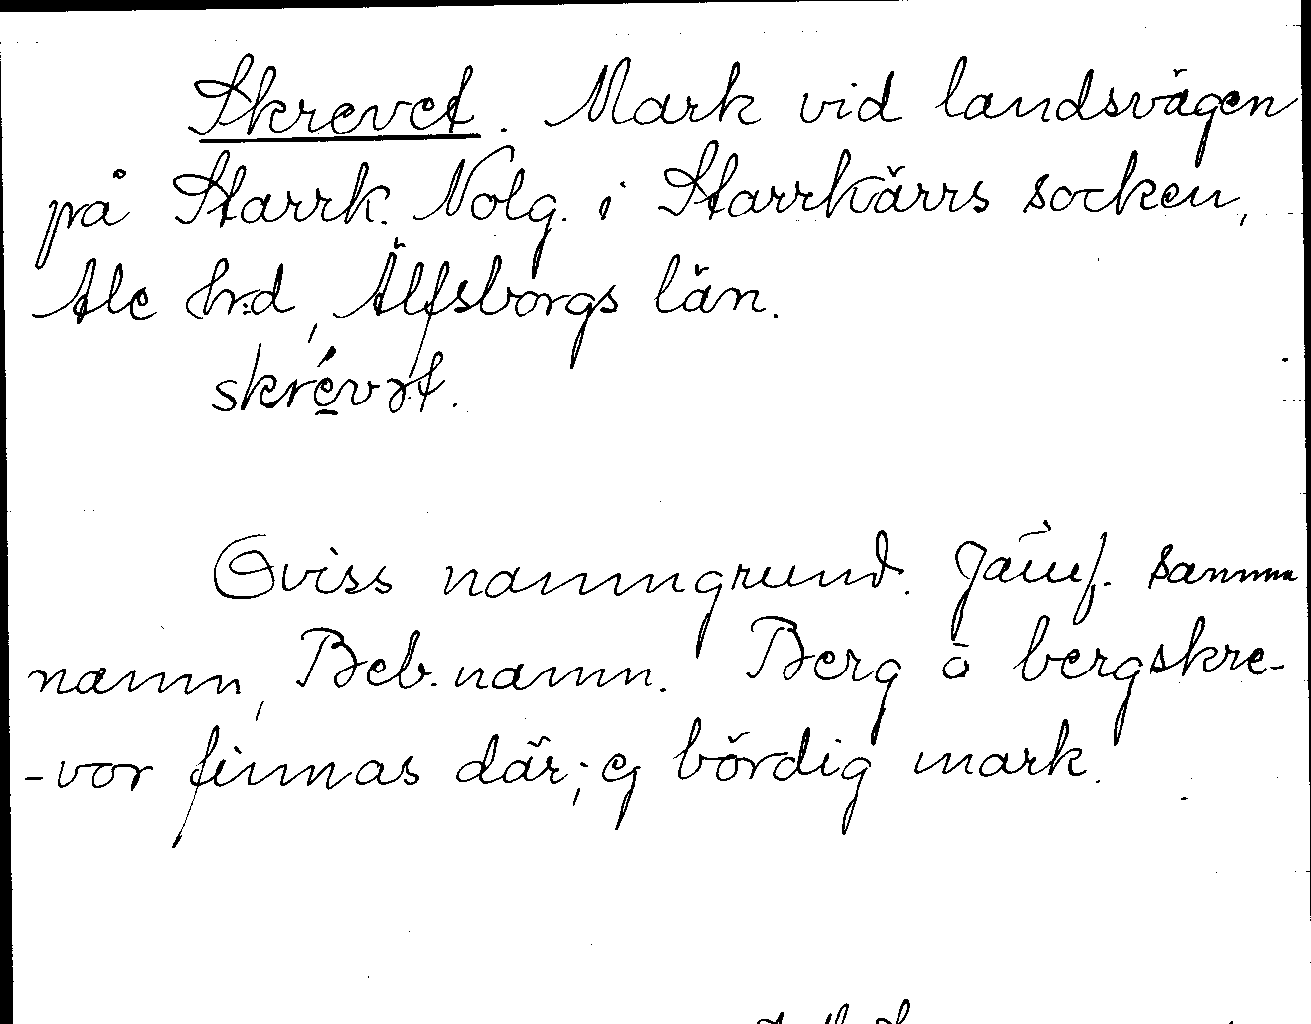 Skrevet. Mark vid landsvägen
på Starrk. Nolg. i Starrkärrs socken,
Ale hrd, Älfsborgs län.
skrévət.
Oviss namngrund. Jämf. samma
namn, Beb. namn. Berg o bergskre-
-vor finnas där; ej bördig mark.